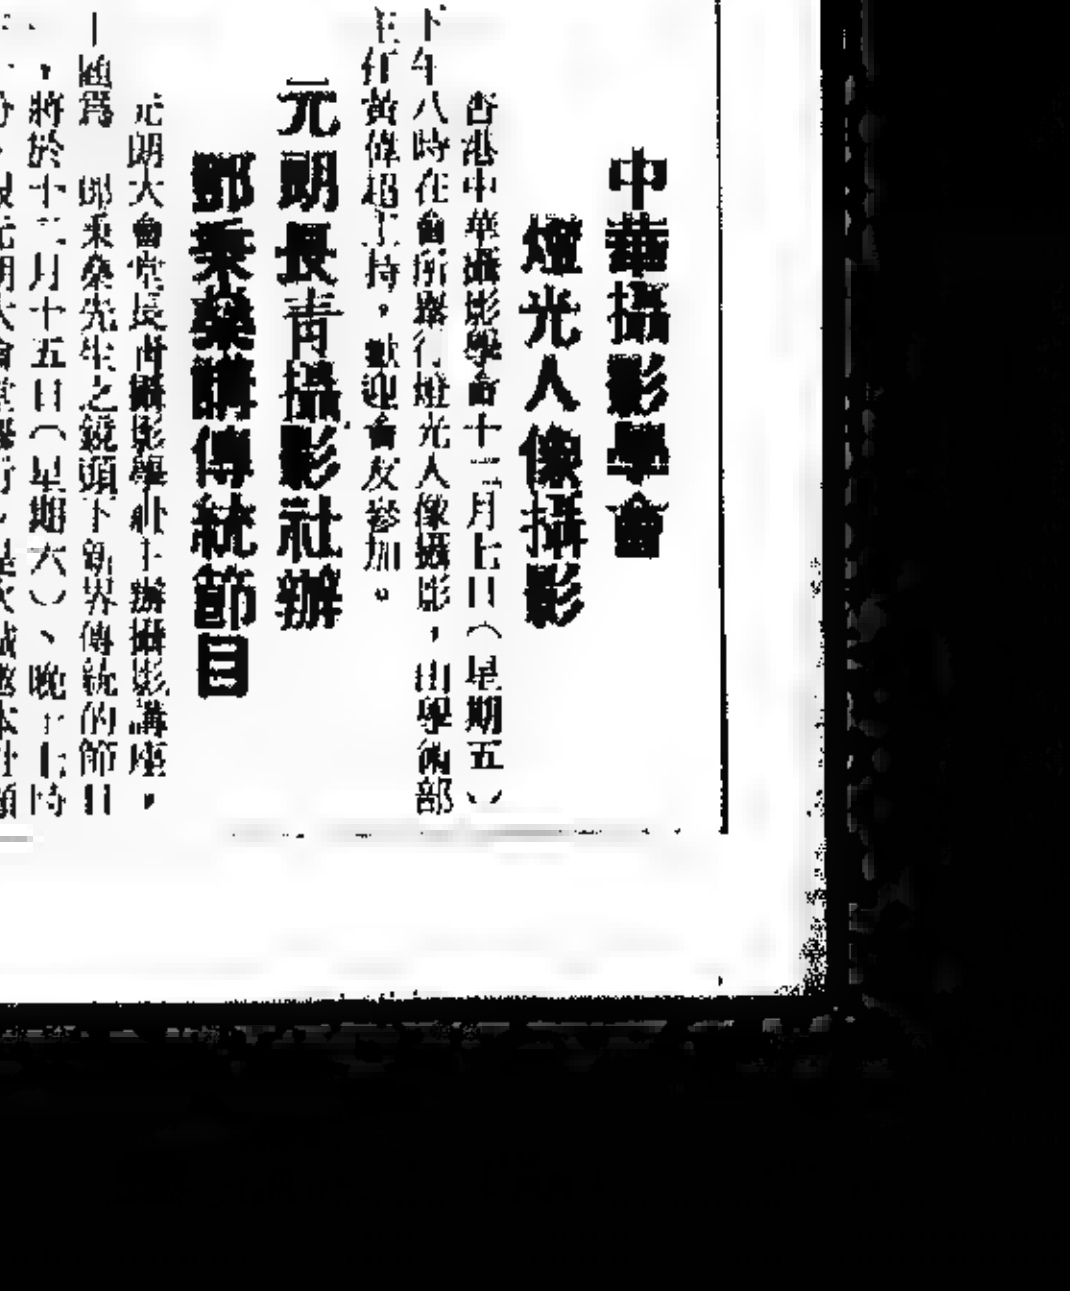 中華攝影學會
燈光人像攝影
香港中華攝影學會十二月七日（星期五）
下午八時在會所舉行燈光人像攝影，由學術部
主任黃偉超主持。歡迎會友參加。
元朗長靑攝影社辦
鄧秉燊講傳統節目
元朗大會堂長靑攝影學社主辦攝影講座，
題爲 鄧秉燊先生之鏡頭下新界傳統的節目
，將於十二月十五日（星期六）、晚上七時
元朗大會堂舉行